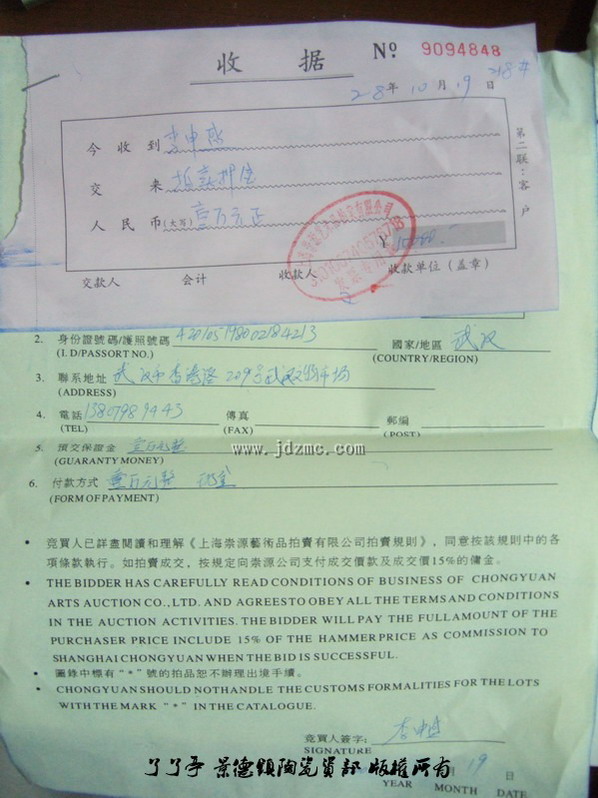 收 据
Nº 9094848
28年10月19日
218#
今 收 到 李申
交 来 拍卖押金
人 民 币(大写) 壹万元正
¥ 10000.-
第二联：客户
交款人 会计 收款人 收款单位（盖章）
2. 身份證號碼/護照號碼 國家/地區 武汉
(I.D/PASSORT NO.) (COUNTRY/REGION)
3. 聯系地址 武汉市香港路209号武汉 市场
(ADDRESS)
4. 電話 傳真 郵編
(TEL) (FAX) (POST)
www.jdzmc.com
5. 預交保證金 壹万元整
(GUARANTY MONEY)
6. 付款方式 壹万元整 现金
(FORM OF PAYMENT)
• 竞買人已詳盡閱讀和理解《上海崇源藝術品拍賣有限公司拍賣規則》，同意按該規則中的各
項條款執行。如拍賣成交，按規定向崇源公司支付成交價款及成交價15%的傭金。
• THE BIDDER HAS CAREFULLY READ CONDITIONS OF BUSINESS OF CHONGYUAN
ARTS AUCTION CO., LTD. AND AGREESTO OBEY ALL THE TERMS AND CONDITIONS
IN THE AUCTION ACTIVITIES. THE BIDDER WILL PAY THE FULLAMOUNT OF THE
PURCHASER PRICE INCLUDE 15% OF THE HAMMERPRICE AS COMMISSION TO
SHANGHAI CHONGYUAN WHEN THE BID IS SUCCESSFUL.
• 圖錄中標有“*”號的拍品恕不辦理出境手續。
• CHONGYUAN SHOULD NOTHANDLE THE CUSTOMS FORMALITIES FOR THE LOTS
WITH THE MARK “*” IN THE CATALOGUE.
竞買人签字: 李申
SIGNATURE
月 19 日
YEAR MONTH DATE
了了亭 景德鎮陶瓷資部 版權所有